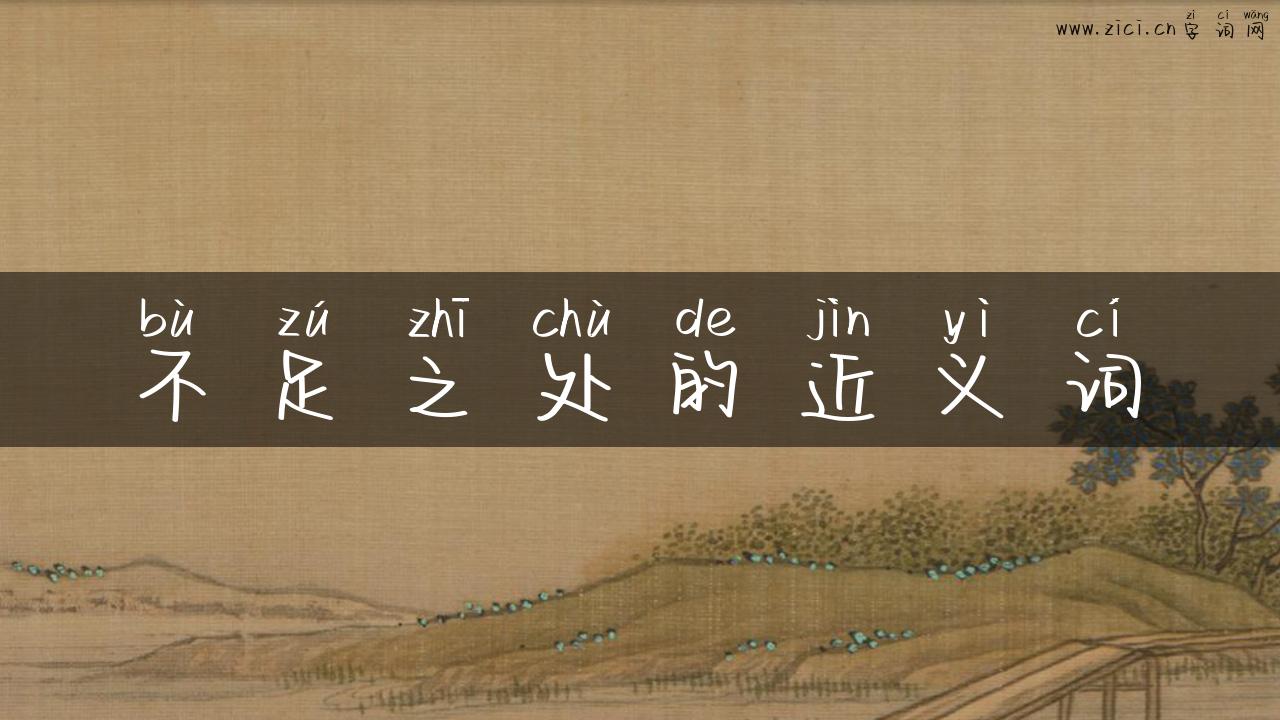 zì cí wǎng
www.zici.cn字词网
bù zú zhī chù de jìn yì cí
不足之处的近义词